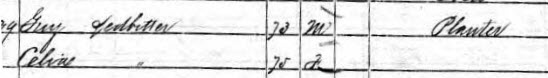 Guy Ledbetter 73 M Planter
Celia " 75 F